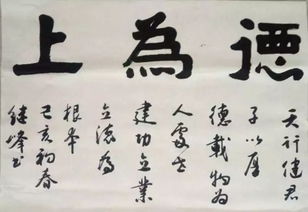 德為上
天行健君
子以厚
德載物為
人處世
建功立業
立德為
根本
己亥初春
健峰书